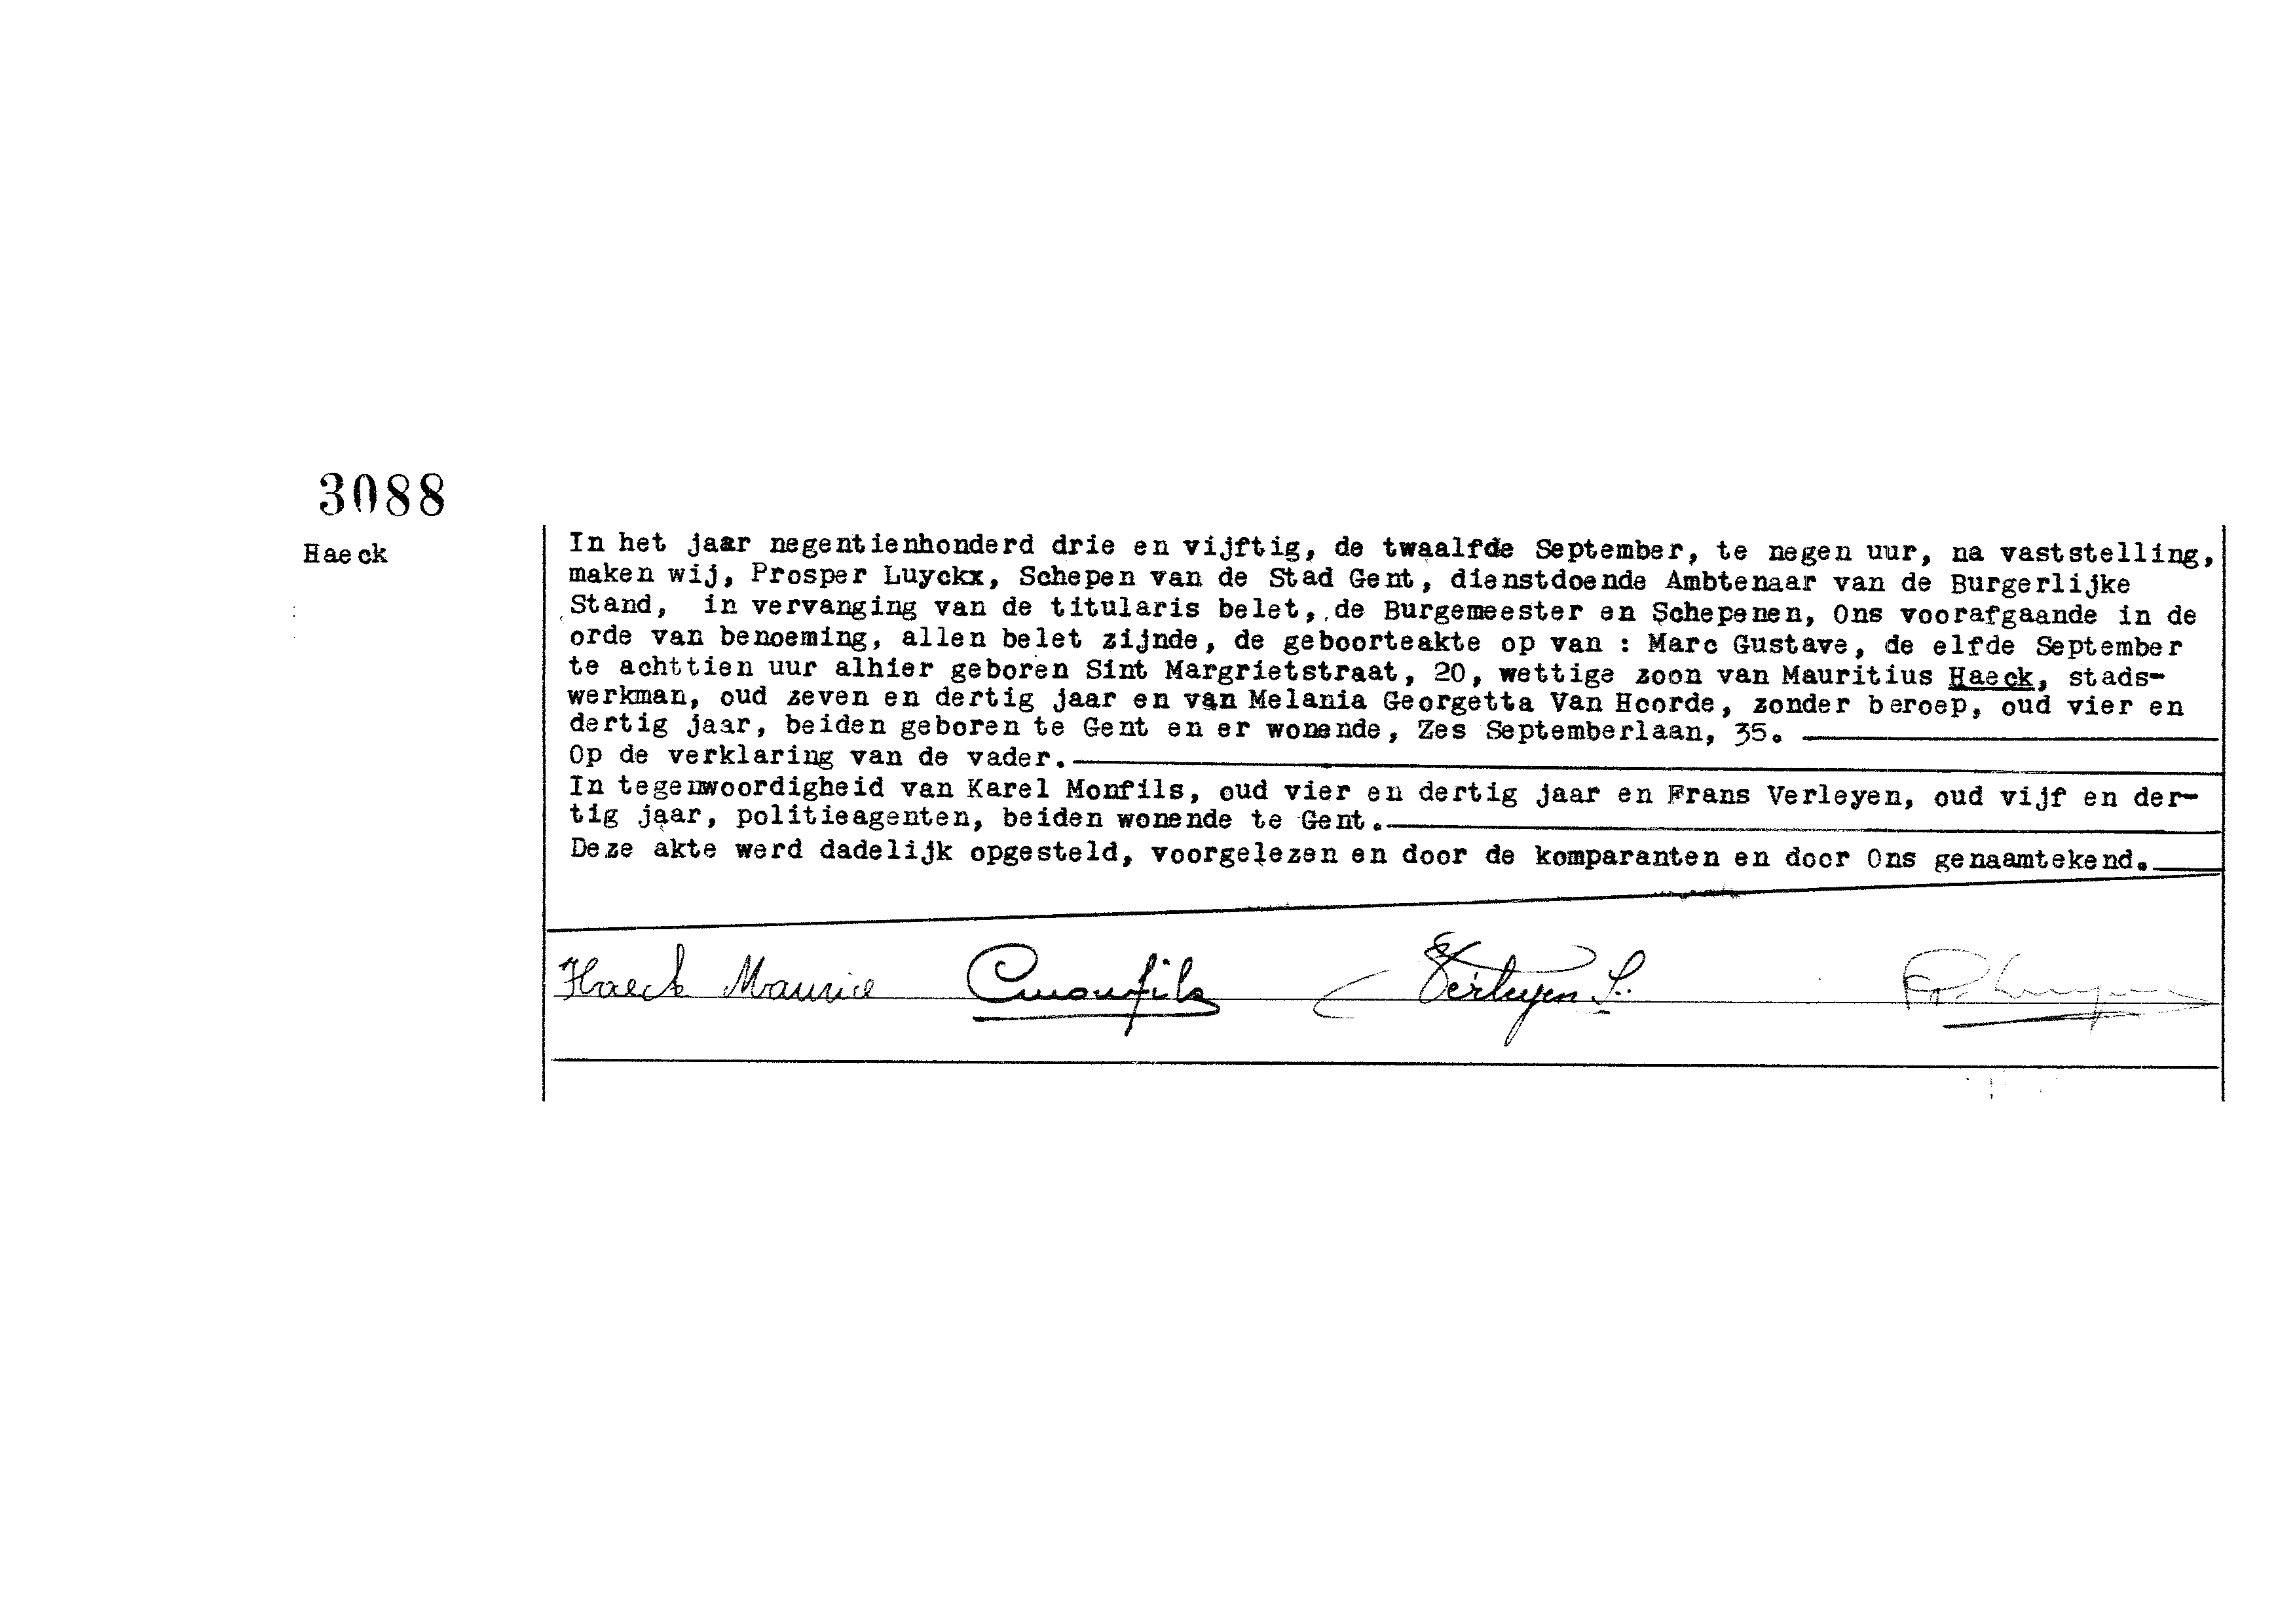 3088
Haeck
In het jaar negentienhonderd drie en vijftig, de twaalfde September, te negen uur, na vaststelling,
maken wij, Prosper Luyckx, Schepen van de Stad Gent, dienstdoende Ambtenaar van de Burgerlijke
Stand, in vervanging van de titularis belet, de Burgemeester en Schepenen, Ons voorafgaande in de
orde van benoeming, allen belet zijnde, de geboorteakte op van : Marc Gustave, de elfde September
te achttien uur alhier geboren Sint Margrietstraat, 20, wettige zoon van Mauritius Haeck, stads-
werkman, oud zeven en dertig jaar en van Melania Georgetta Van Hoorde, zonder beroep, oud vier en
dertig jaar, beiden geboren te Gent en er wonende, Zes Septemberlaan, 35.
Op de verklaring van de vader.
In tegenwoordigheid van Karel Monfils, oud vier en dertig jaar en Frans Verleyen, oud vijf en der-
tig jaar, politieagenten, beiden wonende te Gent.
Deze akte werd dadelijk opgesteld, voorgelezen en door de komparanten en door Ons genaamtekend.
Haeck Maurice Cmonfils Verleyen